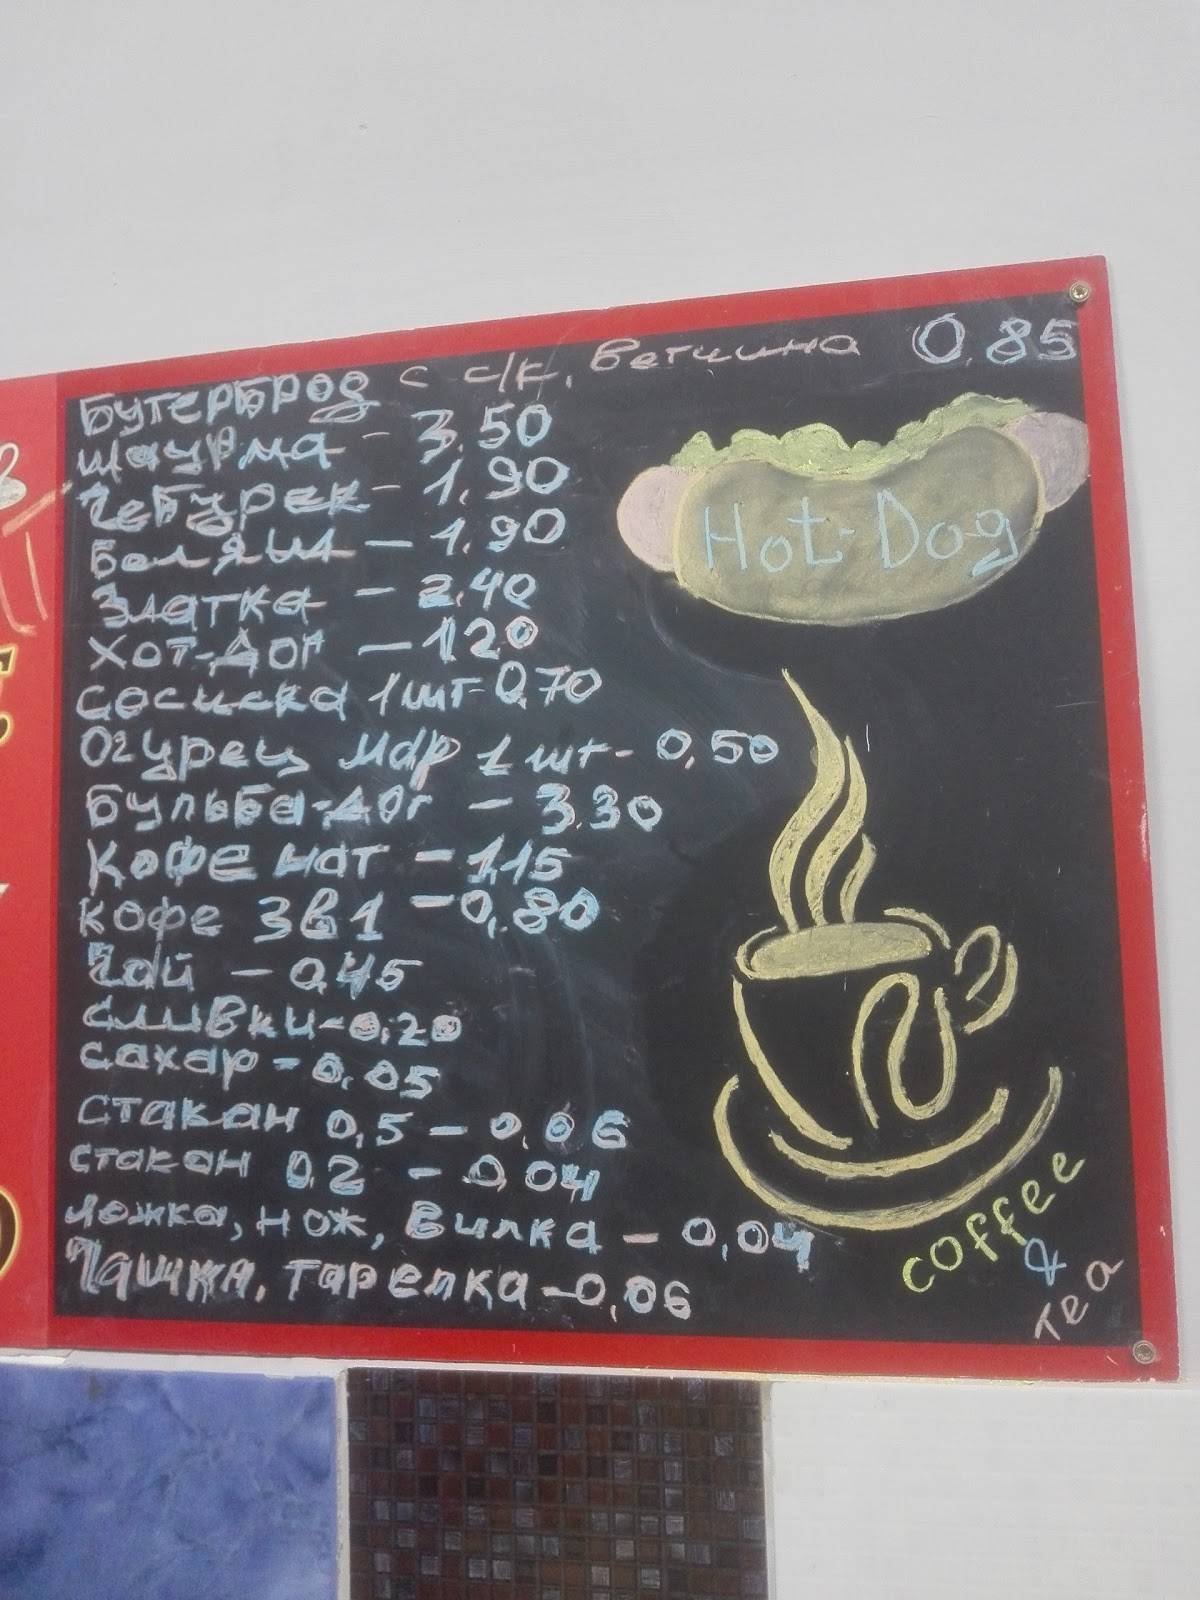 Бутерброд с с/к, ветчина 0.85
Шаурма - 3.50
Чебурек - 1.90
Беляш - 1.90
Златка - 2.40
Хот-Дог - 1.20
Сосиска 1 шт - 0,70
Огурец мар 1 шт - 0,50
Бульба-Дог - 3.30
Кофе нат - 1,15
Кофе 3в1 - 0,80
Чай - 0,45
Сливки - 0,20
Сахар - 0,05
Стакан 0,5 - 0,06
Стакан 0.2 - 0,04
Ложка, нож, вилка - 0,04
Чашка, тарелка - 0,06
Hot-Dog
coffee
&
Tea